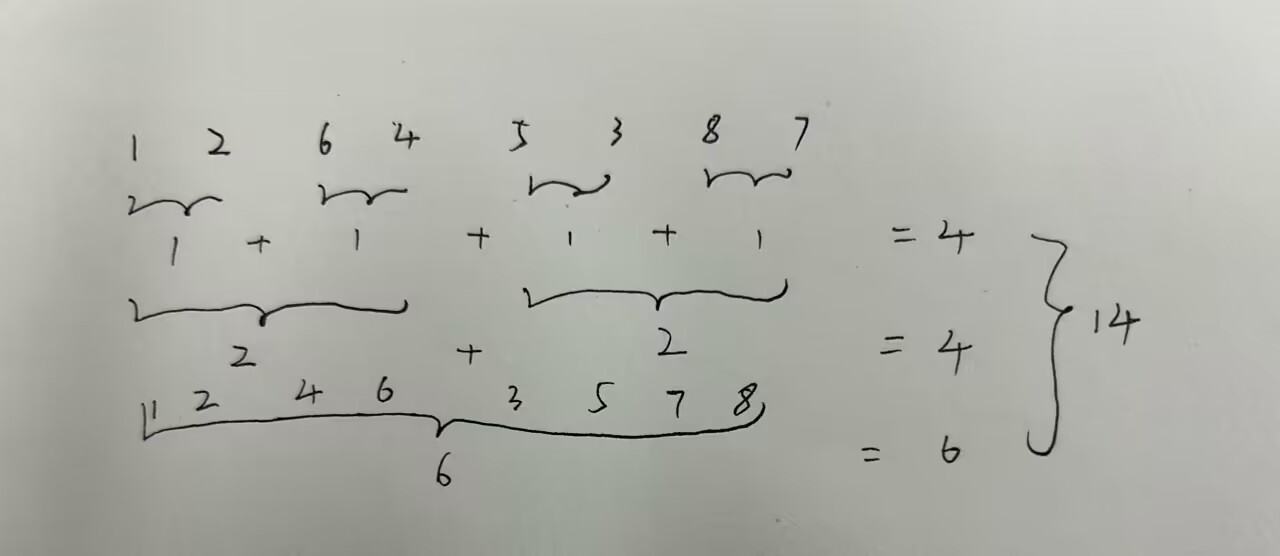 1 2 6 4 5 3 8 7
1 + 1 + 1 + 1 = 4
14
2 + 2 = 4
1 2 4 6 3 5 7 8
6 = 6